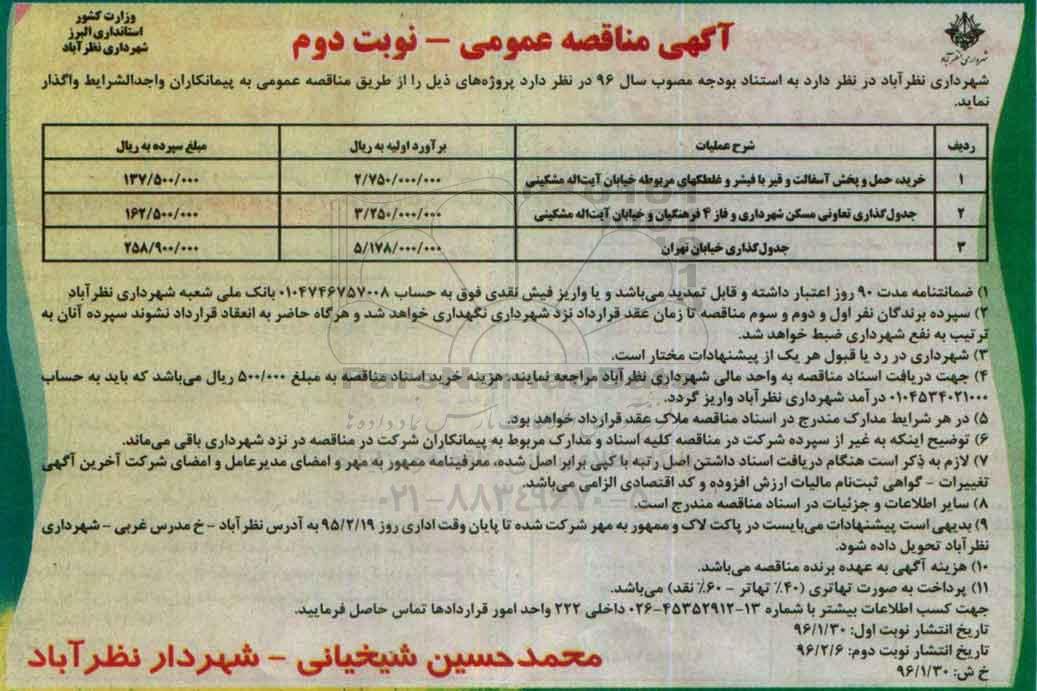 وزارت کشور
استانداری البرز
شهرداری نظرآباد
آگهی مناقصه عمومی – نوبت دوم
شهرداری نظرآباد
شهرداری نظرآباد در نظر دارد به استناد بودجه مصوب سال ۹۶ در نظر دارد پروژه‌های ذیل را از طریق مناقصه عمومی به پیمانکاران واجدالشرایط واگذار
نماید.
ردیف شرح عملیات برآورد اولیه به ریال مبلغ سپرده به ریال
۱ خرید، حمل و پخش آسفالت و قیر با فینشر و غلطکهای مربوطه خیابان آیت‌اله مشکینی ۲/۷۵۰/۰۰۰/۰۰۰ ۱۳۷/۵۰۰/۰۰۰
۲ جدول‌گذاری تعاونی مسکن شهرداری و فاز ۴ فرهنگیان و خیابان آیت‌اله مشکینی ۳/۲۵۰/۰۰۰/۰۰۰ ۱۶۲/۵۰۰/۰۰۰
۳ جدول‌گذاری خیابان تهران ۵/۱۷۸/۰۰۰/۰۰۰ ۲۵۸/۹۰۰/۰۰۰
۱) ضمانتنامه مدت ۹۰ روز اعتبار داشته و قابل تمدید می‌باشد و یا واریز فیش نقدی فوق به حساب ۰۱۰۴۷۴۶۷۵۷۰۰۸ بانک ملی شعبه شهرداری نظرآباد
۲) سپرده برندگان نفر اول و دوم و سوم مناقصه تا زمان عقد قرارداد نزد شهرداری نگهداری خواهد شد و هرگاه حاضر به انعقاد قرارداد نشوند سپرده آنان به
ترتیب به نفع شهرداری ضبط خواهد شد.
۳) شهرداری در رد یا قبول هر یک از پیشنهادات مختار است.
۴) جهت دریافت اسناد مناقصه به واحد مالی شهرداری نظرآباد مراجعه نمایند، هزینه خرید اسناد مناقصه به مبلغ ۵۰۰/۰۰۰ ریال می‌باشد که باید به حساب
۰۱۰۴۵۳۴۰۲۱۰۰۰ درآمد شهرداری نظرآباد واریز گردد.
۵) در هر شرایط مدارک مندرج در اسناد مناقصه ملاک عقد قرارداد خواهد بود.
۶) توضیح اینکه به غیر از سپرده شرکت در مناقصه کلیه اسناد و مدارک مربوط به پیمانکاران شرکت در مناقصه در نزد شهرداری باقی می‌ماند.
۷) لازم به ذکر است هنگام دریافت اسناد داشتن اصل رتبه با کپی برابر اصل شده، معرفینامه ممهور به مهر و امضای مدیرعامل و امضای شرکت آخرین آگهی
تغییرات – گواهی ثبت‌نام مالیات ارزش افزوده و کد اقتصادی الزامی می‌باشد.
۸) سایر اطلاعات و جزئیات در اسناد مناقصه مندرج است.
۹) بدیهی است پیشنهادات می‌بایست در پاکت لاک و ممهور به مهر شرکت شده تا پایان وقت اداری روز ۹۵/۲/۱۹ به آدرس نظرآباد – خ مدرس غربی – شهرداری
نظرآباد تحویل داده شود.
۱۰) هزینه آگهی به عهده برنده مناقصه می‌باشد.
۱۱) پرداخت به صورت تهاتری (۴۰٪ تهاتر – ۶۰٪ نقد) می‌باشد.
جهت کسب اطلاعات بیشتر با شماره ۱۳-۴۵۳۵۲۹۱۲-۰۲۶ داخلی ۲۲۲ واحد امور قراردادها تماس حاصل فرمایید.
تاریخ انتشار نوبت اول: ۹۶/۱/۳۰
تاریخ انتشار نوبت دوم: ۹۶/۲/۶
خ ش: ۹۶/۱/۳۰
محمدحسین شیخیانی – شهردار نظرآباد